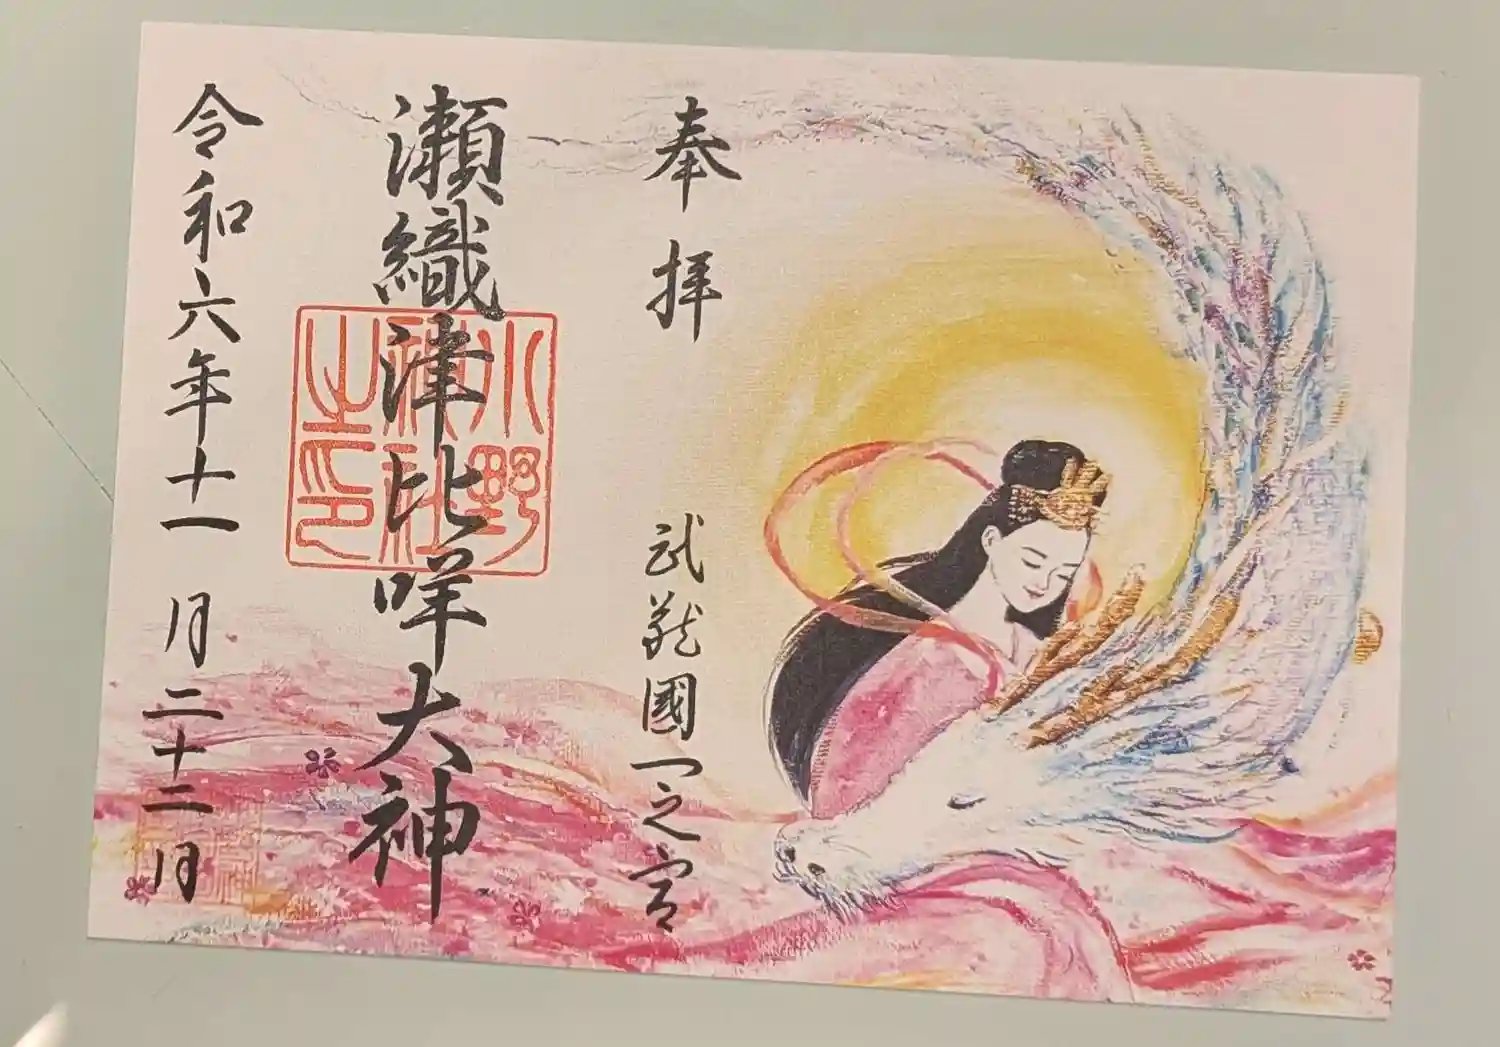 奉拝
武蔵國一之宮
瀬織津比咩大神
小野神社之印
令和六年十一月二十二日